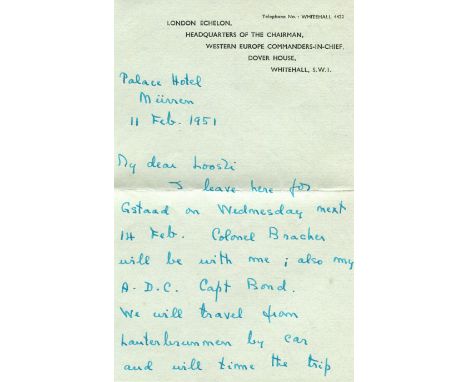 Telephone No.: WHITEHALL 4422
LONDON ECHELON,
HEADQUARTERS OF THE CHAIRMAN,
WESTERN EUROPE COMMANDERS-IN-CHIEF,
DOVER HOUSE,
WHITEHALL, S.W.1.
Palace Hotel
Mürren
11 Feb. 1951
My dear Looski
I leave here for
Gstaad on Wednesday next
14 Feb. Colonel Bracher
will be with me; also my
A.D.C. Capt Bond.
We will travel from
Lauterbrunnen by car
and will time the trip